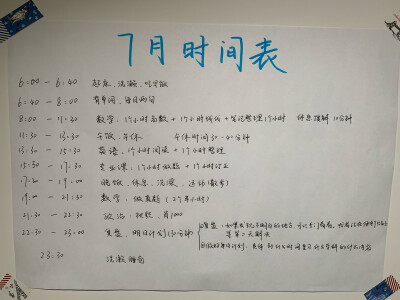 7月时间表
6:00 - 6:40 起床、洗漱、吃早饭
6:40 - 8:00 背单词、每日两句
8:00 - 11:30 数学:1个小时高数+1个小时线代+笔记整理1个小时 休息调解10分钟
11:30 - 13:30 午饭、午休 午休时间30-40分钟
13:30 - 15:30 英语:1个小时阅读+1个小时整理
15:30 - 17:30 专业课:1个小时做题+1个小时订正
17:30 - 19:00 晚饭、休息、洗澡、运动(散步)
19:00 - 21:30 数学:做真题(2个半小时)
21:30 - 22:30 政治:视频、肖1000
22:30 - 23:00 复盘、明日计划(30分钟)
①复盘:如果发现不明白的地方
是第二天解决
②做好每日计划
23:30 洗漱 睡觉